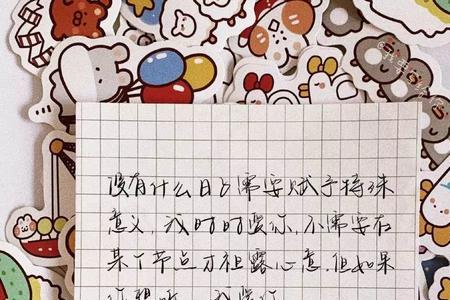 没有什么日子需要赋予特殊
意义,我时时爱你,不需要在
某个节点才袒露心意.但如果
你想听 我爱你